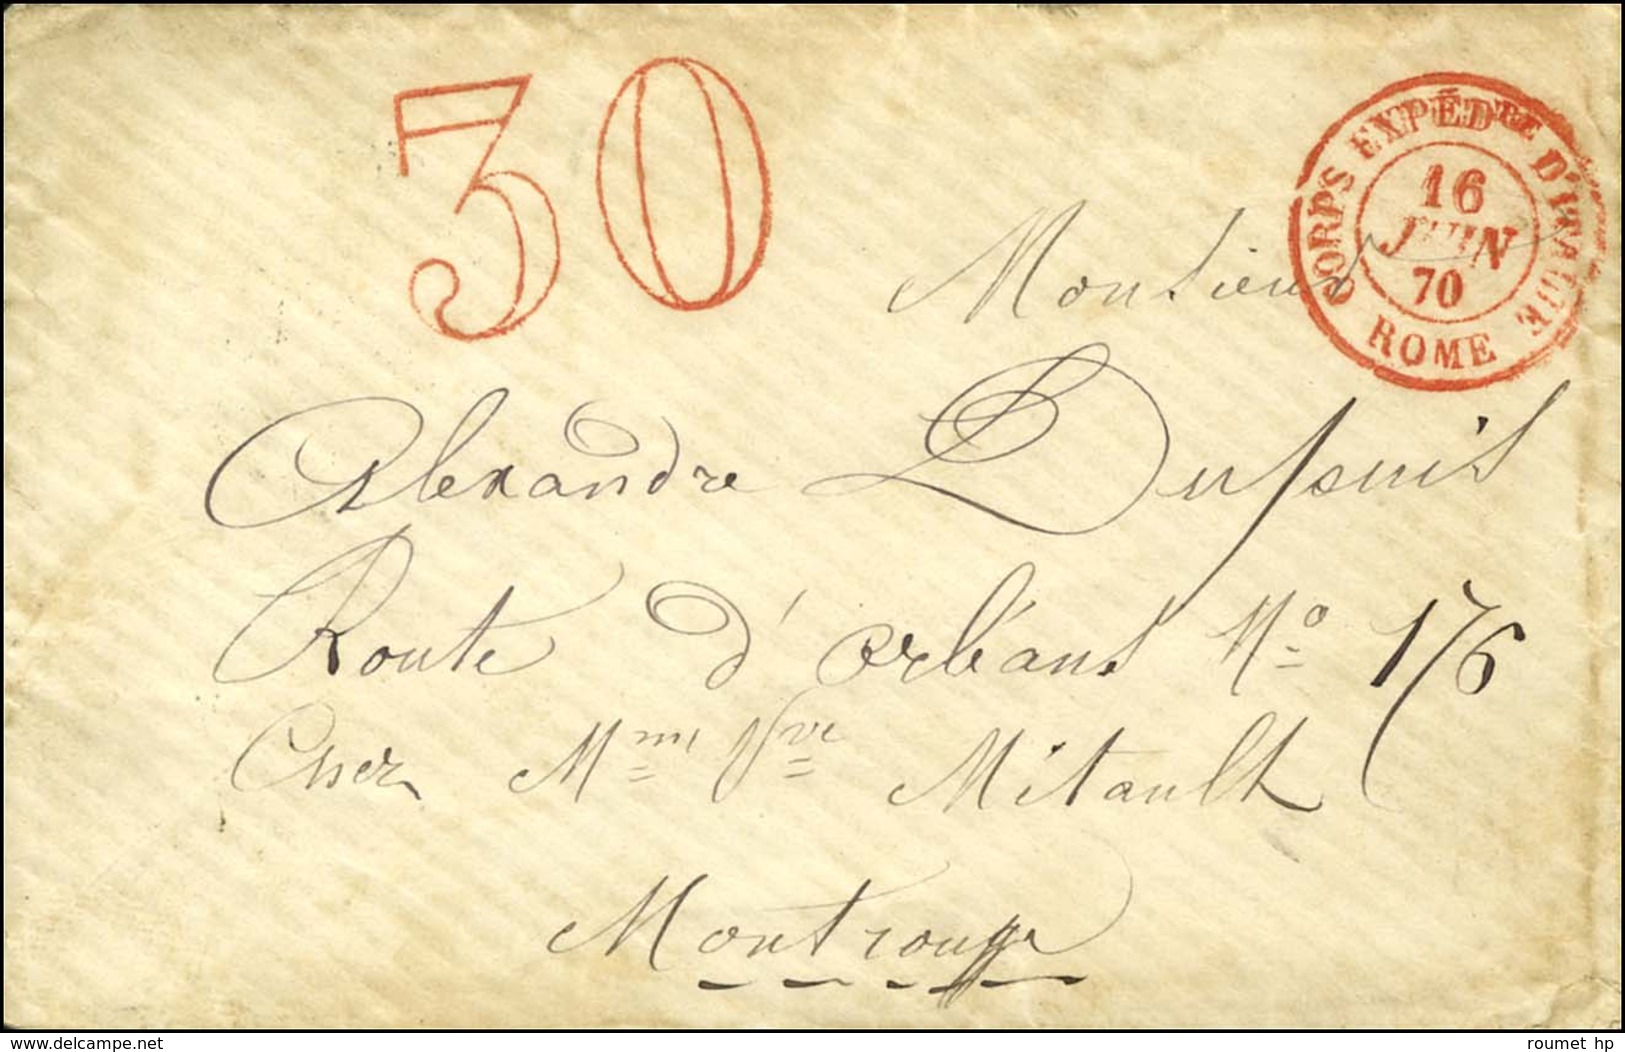 30
CORPS EXPÉDRE D'ITALIE
16
JUIN
70
ROME
Monsieur
Alexandre Dupuis
Route d'orléans No 176
Chez Mme Vve Mitault
Montrouge
delcampe.net
roumet hp